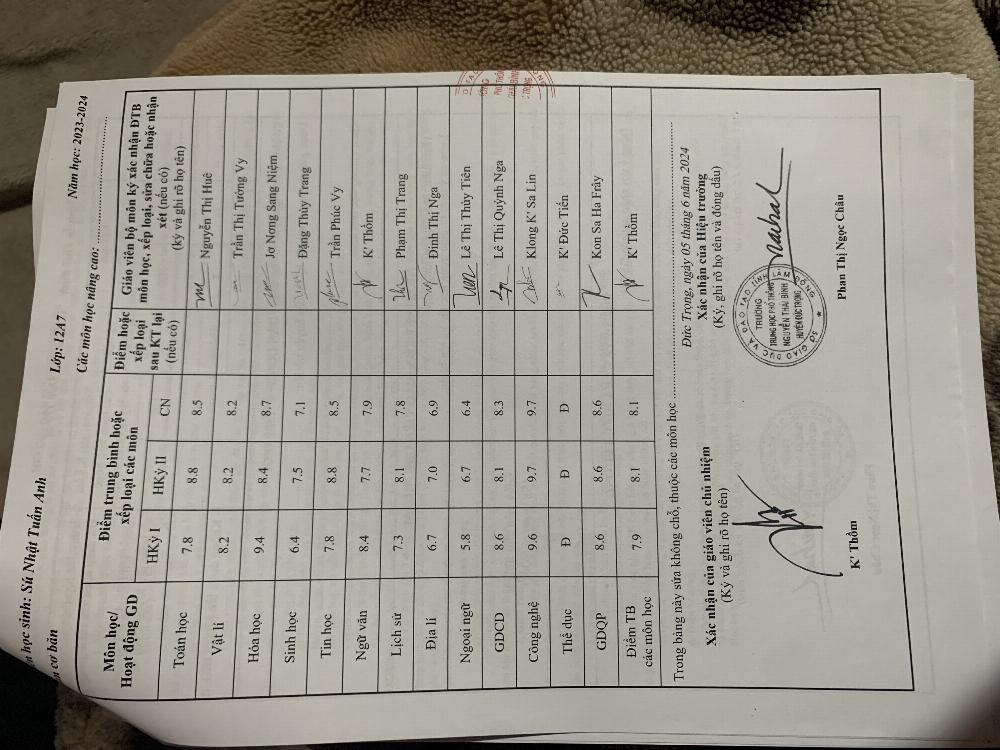 học sinh: Sú Nhật Tuấn Anh Lớp: 12A7 Năm học: 2023-2024
cơ bản Các môn học nâng cao: ....................
Môn học/ Hoạt động GD
Điểm trung bình hoặc xếp loại các môn
HKỳ I HKỳ II CN
Điểm hoặc xếp loại sau KT lại (nếu có)
Giáo viên bộ môn ký xác nhận ĐTB môn học, xếp loại, sửa chữa hoặc nhận xét (nếu có)
(ký và ghi rõ họ tên)
Toán học 7.8 8.8 8.5 Nguyễn Thị Huê
Vật lí 8.2 8.2 8.2 Trần Thị Tường Vy
Hóa học 9.4 8.4 8.7 Jơ Nơng Sang Niệm
Sinh học 6.4 7.5 7.1 Đặng Thùy Trang
Tin học 7.8 8.8 8.5 Trần Phúc Vy
Ngữ văn 8.4 7.7 7.9 K' Thồm
Lịch sử 7.3 8.1 7.8 Phạm Thị Trang
Địa lí 6.7 7.0 6.9 Đinh Thị Nga
Ngoại ngữ 5.8 6.7 6.4 Lê Thị Thủy Tiên
GDCD 8.6 8.1 8.3 Lê Thị Quỳnh Nga
Công nghệ 9.6 9.7 9.7 Klong K' Sa Lin
Thể dục Đ Đ Đ K' Đức Tiến
GDQP 8.6 8.6 8.6 Kon Sa Ha Frây
Điểm TB các môn học 7.9 8.1 8.1 K' Thồm
Trong bảng này sửa không chỗ, thuộc các môn học ....................
Đức Trọng, ngày 05 tháng 6 năm 2024
Xác nhận của giáo viên chủ nhiệm
(Ký và ghi rõ họ tên)
Xác nhận của Hiệu trưởng
(Ký, ghi rõ họ tên và đóng dấu)
SỞ GIÁO DỤC VÀ ĐÀO TẠO TỈNH LÂM ĐỒNG
TRƯỜNG
TRUNG HỌC PHỔ THÔNG
NGUYỄN THÁI BÌNH
HUYỆN ĐỨC TRỌNG
K' Thồm
Phan Thị Ngọc Châu